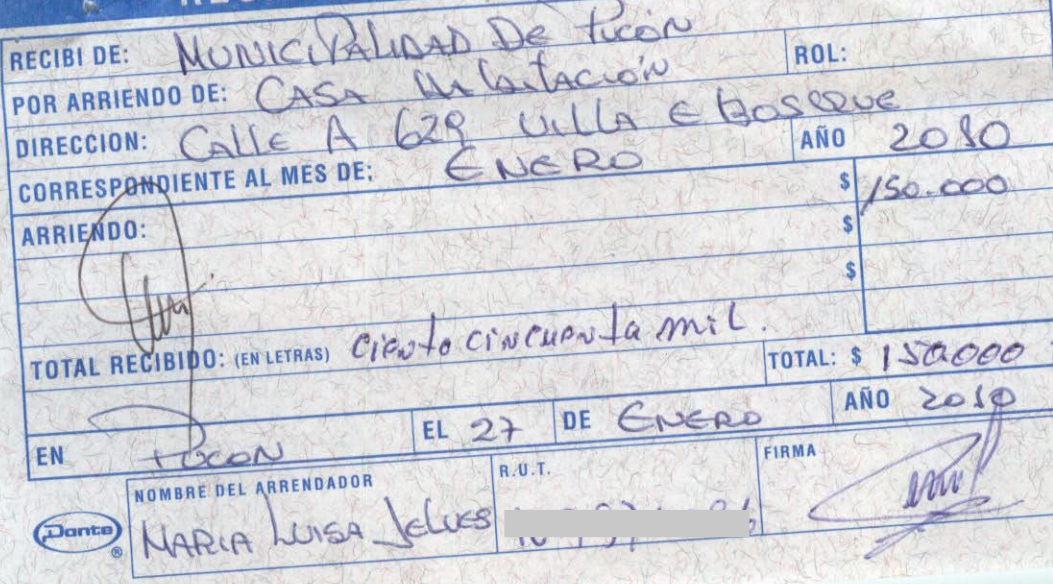 RECIBI DE: MUNICIPALIDAD De Pucón ROL:
POR ARRIENDO DE: CASA HABitACIóN
DIRECCION: CAllE A 629 VILLA E BOSQUE
CORRESPONDIENTE AL MES DE: ENERO AÑO 2010
ARRIENDO: $ 150.000
$
$
TOTAL RECIBIDO: (EN LETRAS) Ciento cincuenta mil. TOTAL: $ 150.000
EN PUCON EL 27 DE ENERO AÑO 2010
NOMBRE DEL ARRENDADOR R.U.T. FIRMA
Dante ® MARIA LUISA